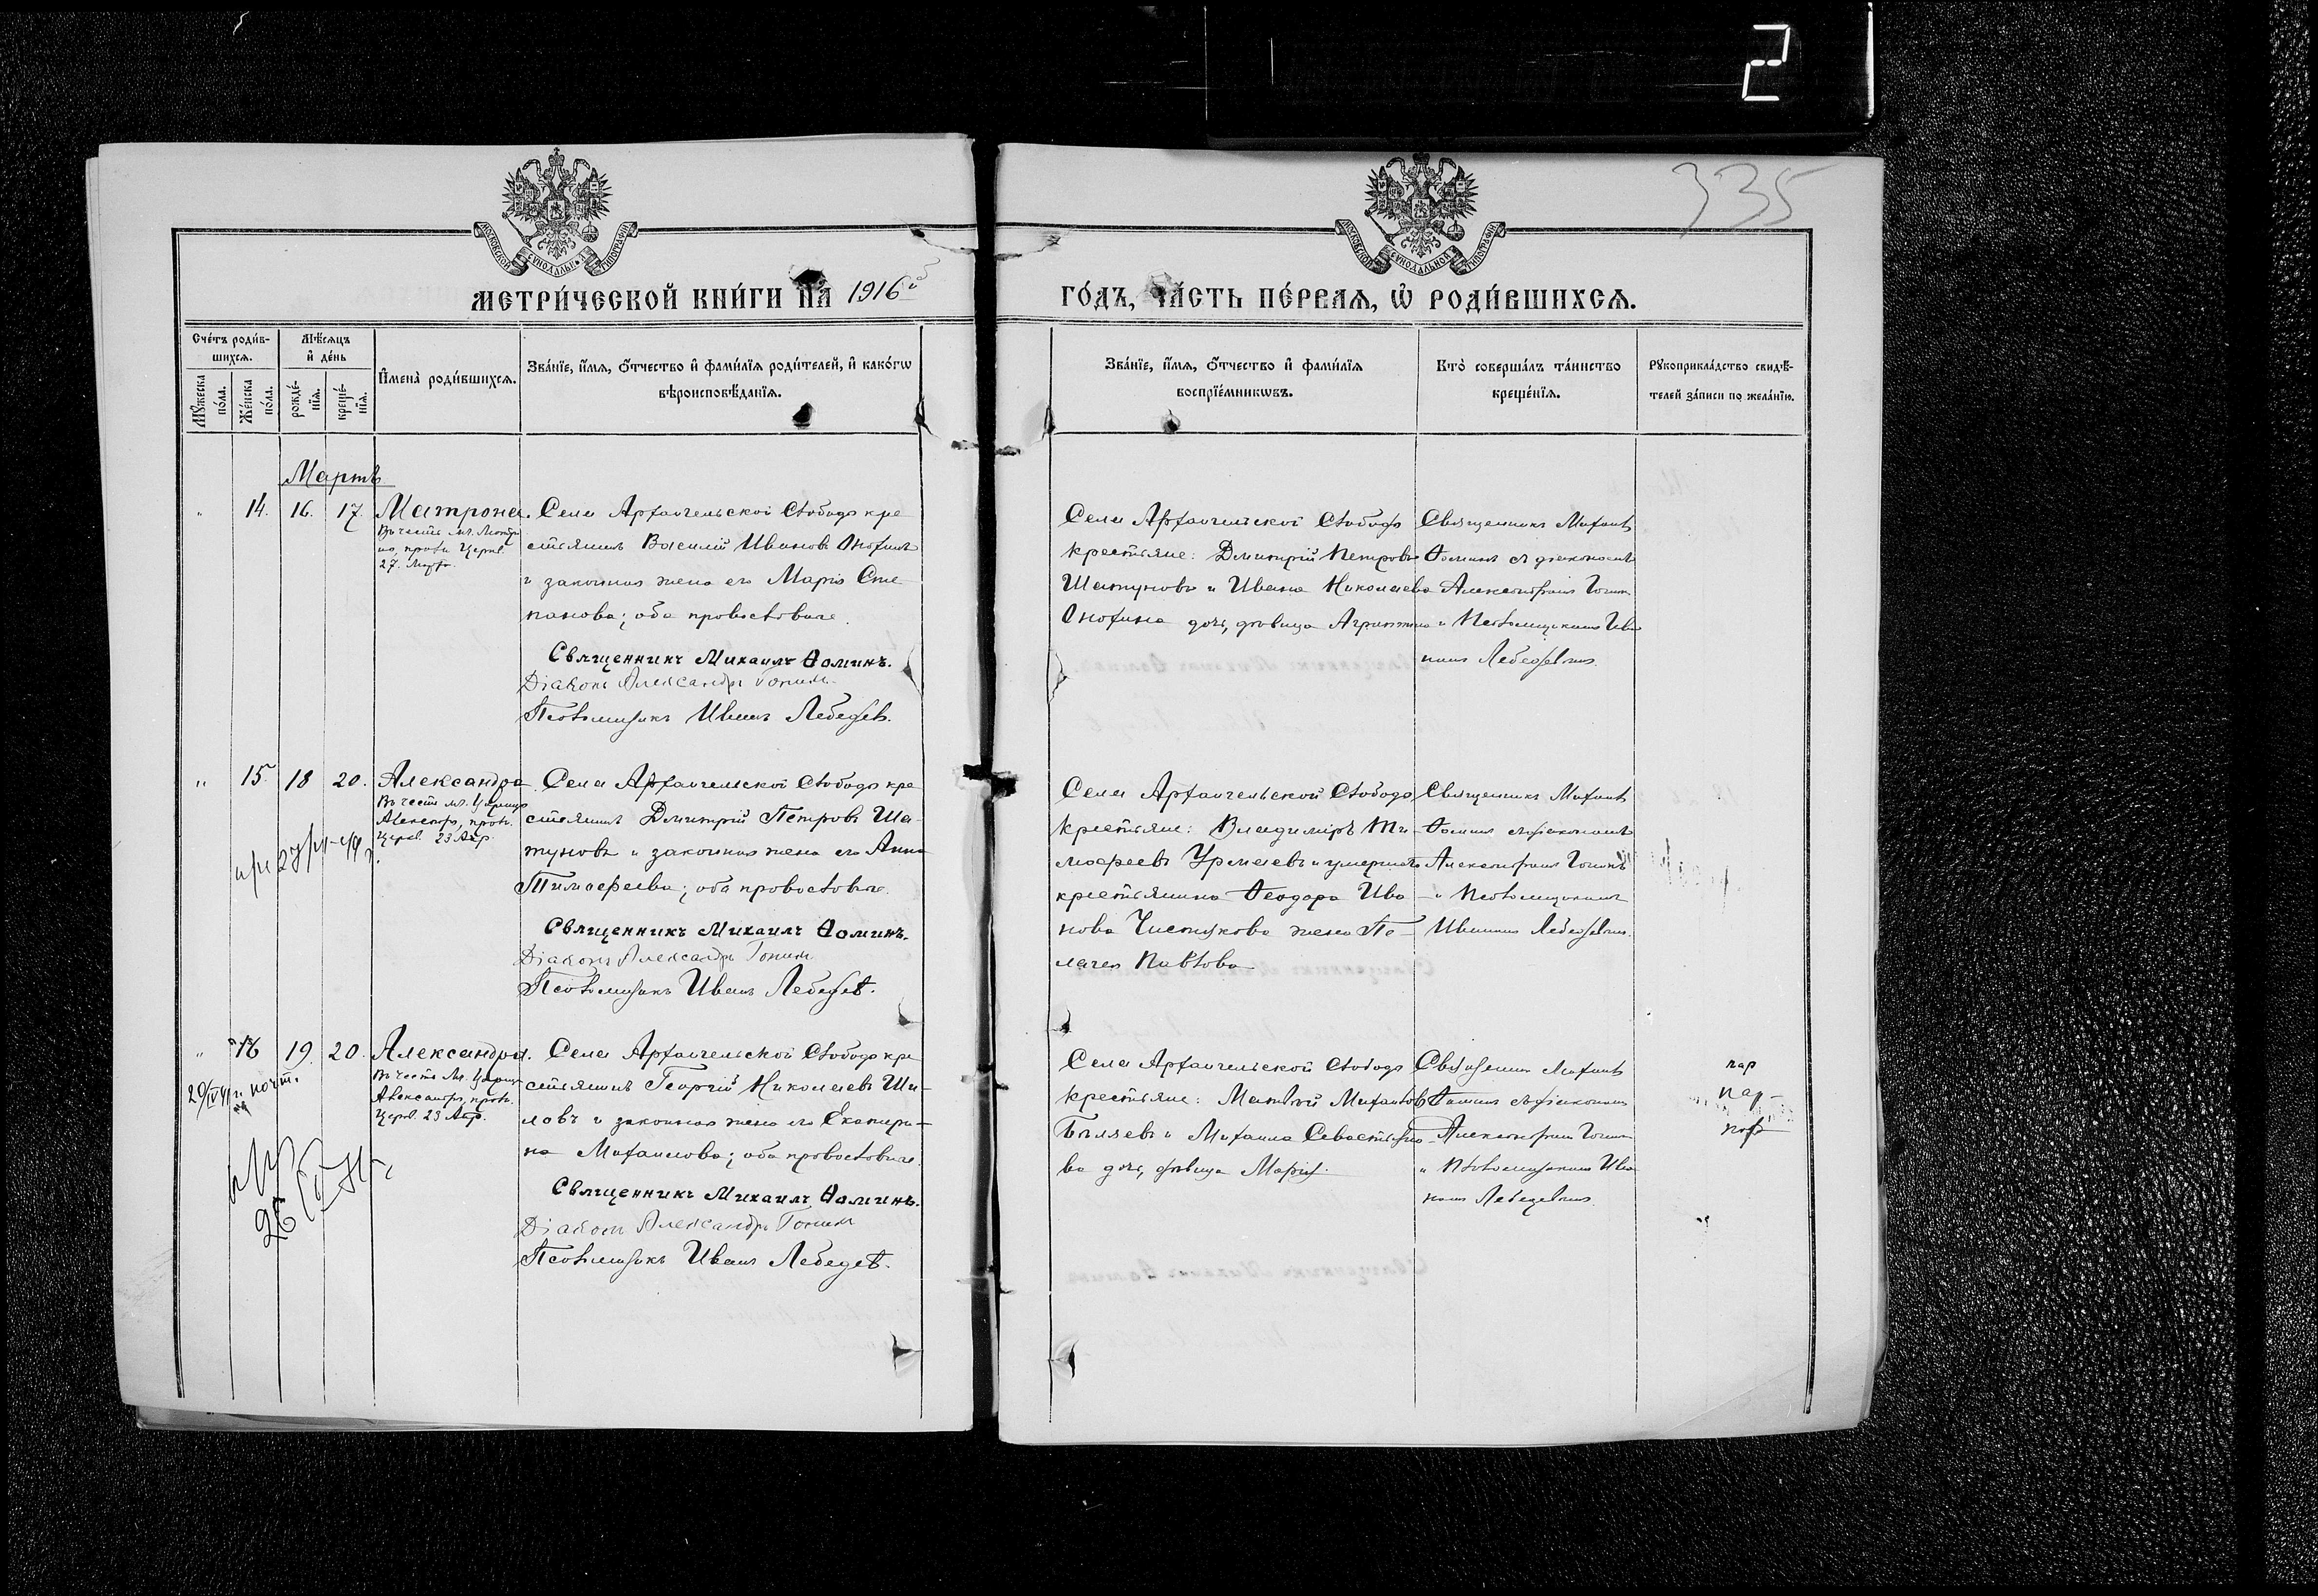 2
335
МЕТРИ́ЧЕСКОЙ КНИ́ГИ НА 1916й
ГО́ДЪ, ЧА́СТЬ ПЕ́РВАЯ, Ѡ РОДИ́ВШИХСЯ.
Сче́тъ роди́в-
шихся.
Мѣ́сяцъ
и҆ де́нь
Мꙋ́жеска
по́ла.
Же́нска
по́ла.
рожде́-
нїя.
креще́-
нїя.
И҆мена̀ роди́вшихся.
Зва́нїе, и҆́мя, ѻ҆́тчество и҆ фами́лїя роди́телей, и҆ како́гѡ
вѣроисповѣ́данїя.
Зва́нїе, и҆́мя, ѻ҆́тчество и҆ фами́лїя
воспрїе́мникѡвъ.
Кто̀ соверша́лъ та́инство
креще́нїя.
Рꙋкоприкла́дство свидѣ́-
телей за́писи по жела́нїю.
Мартъ
" 14. 16. 17. Матрона.
27. Марта
Села Архангельской Слободы кре
стьянинъ Василій Ивановъ Анохинъ
и законная жена его Марія Сте
панова; оба православные.
Священникъ Михаилъ Ѳоминъ.
Діаконъ Александръ
Псаломщикъ Иванъ Лебедевъ.
Села Архангельской Слободы
крестьяне: Дмитрій Петровъ
Шатуновъ и Ивана Николаева
Анохина дочь, дѣвица
Священникъ Михаилъ
Ѳоминъ съ діакономъ
Александромъ
и Псаломщикомъ Ива
номъ Лебедевымъ.
" 15. 18 20. Александра
Въ честь мч. Царицы
Александры, празн.
Церк. 23 Апр.
Села Архангельской Слободы кре
стьянинъ Дмитрій Петровъ Ша-
туновъ и законная жена его Анна
Тимоѳеева; оба православные.
Священникъ Михаилъ Ѳоминъ.
Діаконъ Александръ
Псаломщикъ Иванъ Лебедевъ.
Села Архангельской Слободы
крестьяне: Владиміръ Ти-
моѳеевъ и умершаго
крестьянина Ѳеодора Ива
нова жена Пе-
лагея Павлова
Священникъ Михаилъ
Ѳоминъ съ діакономъ
Александромъ
и Псаломщикомъ
Иваномъ Лебедевымъ.
" 16 19. 20. Александра.
Въ честь Мч. Цариц
Александры, празн.
Церк. 23 Апр.
Села Архангельской Слободы кре
стьянинъ Георгій Николаевъ Ши-
ловъ и законная жена его Екатери-
на Михаилова; оба православные.
Священникъ Михаилъ Ѳоминъ.
Діаконъ Александръ
Псаломщикъ Иванъ Лебедевъ.
Села Архангельской Слободы
крестьяне: Матвѣй Михаиловъ
Бѣляевъ и Михаила Севастьяно-
ва дочь, дѣвица Марія.
Священникъ Михаилъ
Ѳоминъ съ діакономъ
Александромъ
и Псаломщикомъ Ива
номъ Лебедевымъ.
пар
пар-